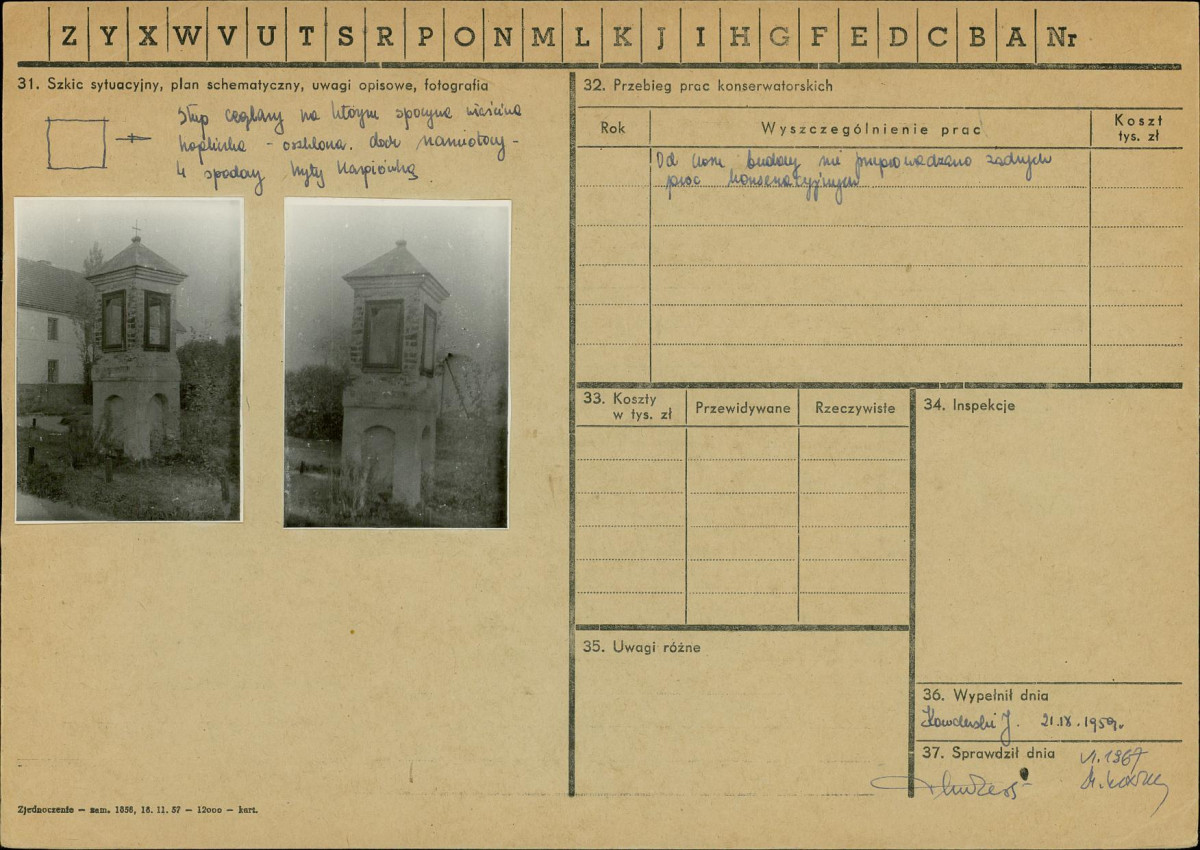 Z Y X W V U T S R P O N M L K J I H G F E D C B A Nr
31. Szkic sytuacyjny, plan schematyczny, uwagi opisowe, fotografia
Słup ceglany na którym spoczywa właściwa
kapliczka - oszklona. dach namiotowy -
4 spadowy kryty karpiówką
32. Przebieg prac konserwatorskich
Rok
Wyszczególnienie prac
Koszt
tys. zł
Od czasu budowy nie przeprowadzano żadnych
prac konserwacyjnych
33. Koszty
w tys. zł
Przewidywane
Rzeczywiste
34. Inspekcje
35. Uwagi różne
36. Wypełnił dnia
J. 21.IX.1959r.
37. Sprawdził dnia
Zjednoczenie — zam. 1858, 16. 11. 57 — 12000 — kart.